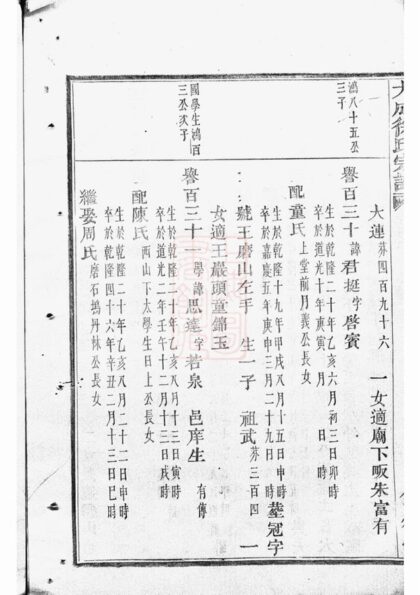 大成徐氏宗譜
大連 芬四百九十六 一女適廟下畈朱富有
鴻八十五公
三子
譽百三十 諱君挺字啓賓
生於乾隆二十年乙亥六月初三日卯時
卒於道光十年庚寅 月 日 時
配童氏 上堂前月義公長女
生於乾隆十九年甲戌八月十五日申時
卒於嘉慶五年庚申三月二十九日時 塟冠字
號王磨山左手 生一子 祖武 芬三百四 一
女適王巖頭童錦玉
國學生鴻百
三公次子
譽百三十一 學諱思達字若泉 邑庠生 有傳
生於乾隆二十年乙亥八月十三日寅時
卒於道光二年壬午十二月十三日戌時
配陳氏 西山下太學生日上公長女
生於乾隆二十年乙亥八月二十二日申時
卒於乾隆四十六年辛丑二月十三日巳時
繼娶周氏 磨石塢丹林公長女